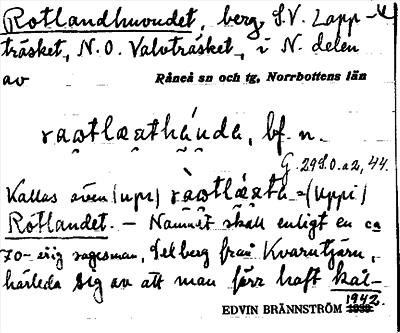 Rotlandhuvudet, berg, S.V. Lapp-
träsket, N.O. Valvträsket, i N. delen
av Råneå sn och tg, Norrbottens län
bf. n.
G. 29 S.O. a2, 44.
Kallas även (upr)
Rotlandet. – Namnet skall enligt en ca
70-årig sagesman, Selberg från Kvarntjärn,
härleda sig av att man förr haft kål-
EDVIN BRÄNNSTRÖM 1942